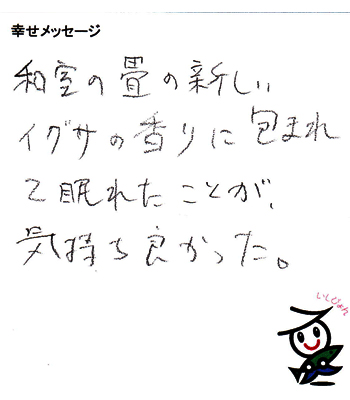 幸せメッセージ
和室の畳の新しい
イグサの香りに包まれ
て眠れたことが、
気持ち良かった。
いしぴょん